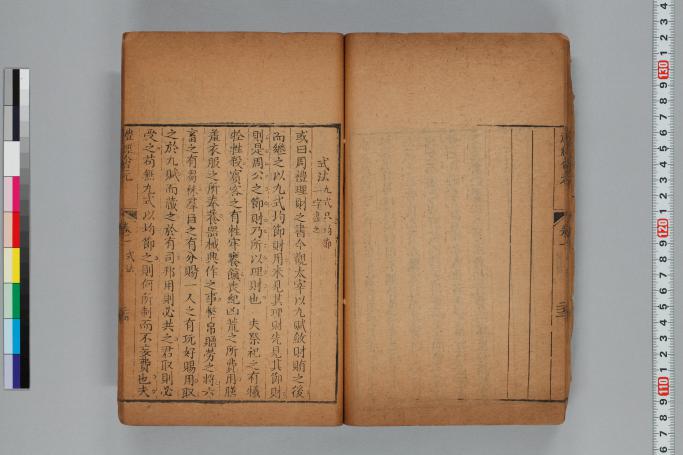 式法 九式只均節
一字盡之
或曰周禮理財之書今觀太宰以九賦斂財賄之後
而繼之以九式均節財用未見其理財先見其節財
則是周公之節財乃所以理財也 夫祭祀之有犧
牲牲殺賓客之有牲牢饔餼喪紀凶荒之所費用膳
羞衣服之所奉養器械興作之事幣帛賵勞之將六
畜之有芻秣群臣之有分賜一人之有玩好賜用取
之於九賦而藏之於有司邦用則必共之君取則必
受之苟無九式以均節之則何所制而不妄費也夫
禮經會元
卷一 式法